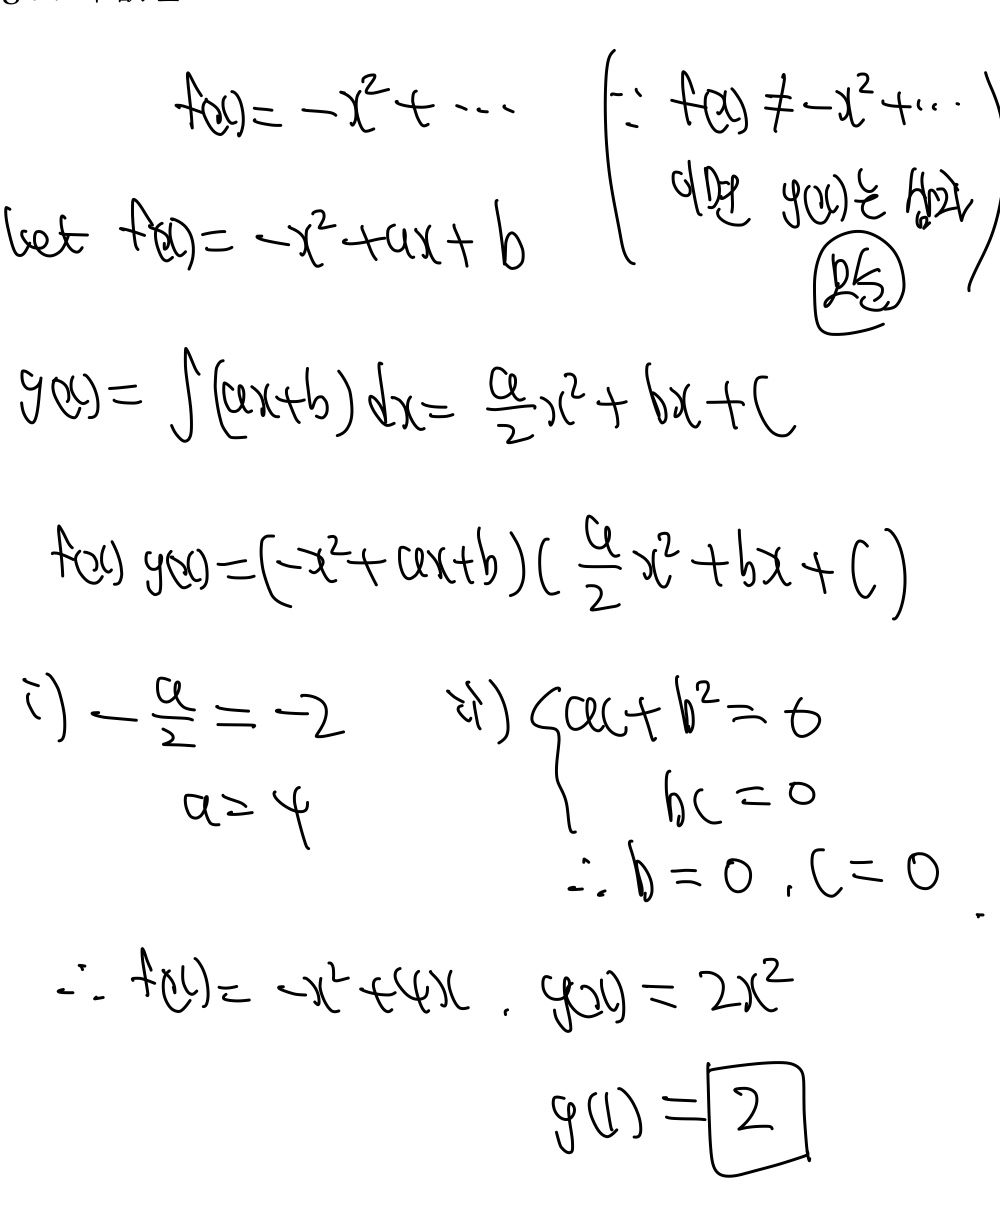 f(x) = -x² + ⋯ (∵ f(x) ≠ -x² + ⋯
이면 g(x)는
모순)
Let f(x) = -x² + ax + b
g(x) = ∫(ax+b)dx = a/2 x² + bx + C
f(x) g(x) = (-x² + ax + b)(a/2 x² + bx + C)
i) -a/2 = -2 ii) { ac + b² = 0
a = 4 bc = 0
∴ b = 0 , C = 0
∴ f(x) = -x² + 4x , g(x) = 2x²
g(1) = 2